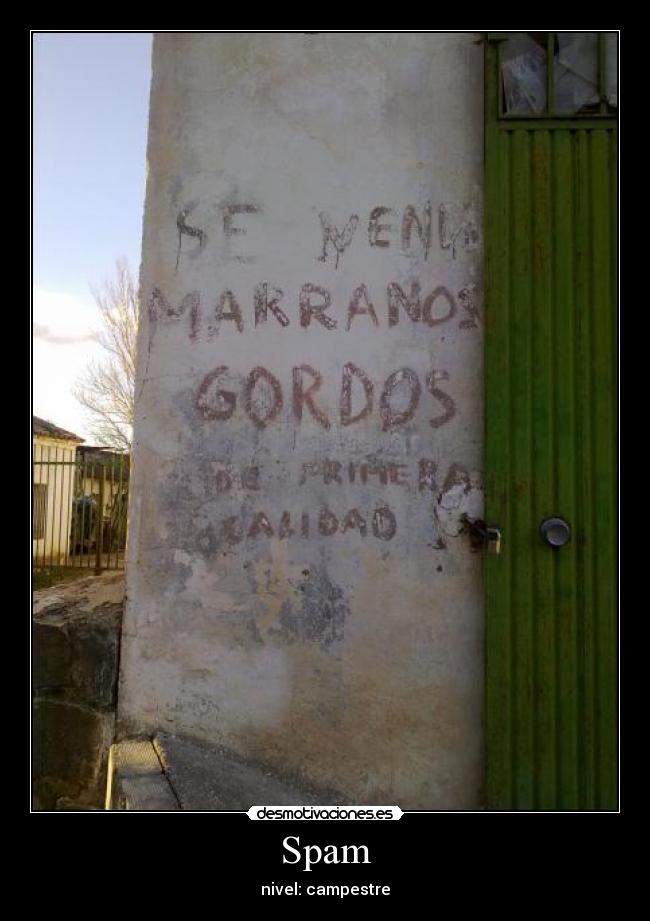 SE VEND
MARRANOS
GORDOS
DE PRIMERA
CALIDAD
desmotivaciones.es
Spam
nivel: campestre